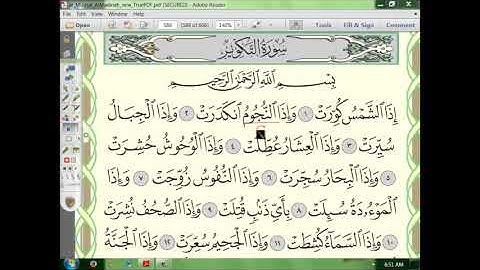 Mushaf_AlMadinah_new_TruePDF.pdf (SECURED) - Adobe Reader
Open
586
(586 of 606)
140%
Tools
Fill & Sign
Comment
سُورَةُ التَّكْوِيرِ
بِسْمِ اللَّهِ الرَّحْمَٰنِ الرَّحِيمِ
إِذَا الشَّمْسُ كُوِّرَتْ ١ وَإِذَا النُّجُومُ انكَدَرَتْ ٢ وَإِذَا الْجِبَالُ
سُيِّرَتْ ٣ وَإِذَا الْعِشَارُ عُطِّلَتْ ٤ وَإِذَا الْوُحُوشُ حُشِرَتْ
٥ وَإِذَا الْبِحَارُ سُجِّرَتْ ٦ وَإِذَا النُّفُوسُ زُوِّجَتْ ٧ وَإِذَا
الْمَوْءُۥدَةُ سُئِلَتْ ٨ بِأَيِّ ذَنۢبٍ قُتِلَتْ ٩ وَإِذَا الصُّحُفُ نُشِرَتْ
١٠ وَإِذَا السَّمَاءُ كُشِطَتْ ١١ وَإِذَا الْجَحِيمُ سُعِّرَتْ ١٢ وَإِذَا الْجَنَّةُ
6:51 AM